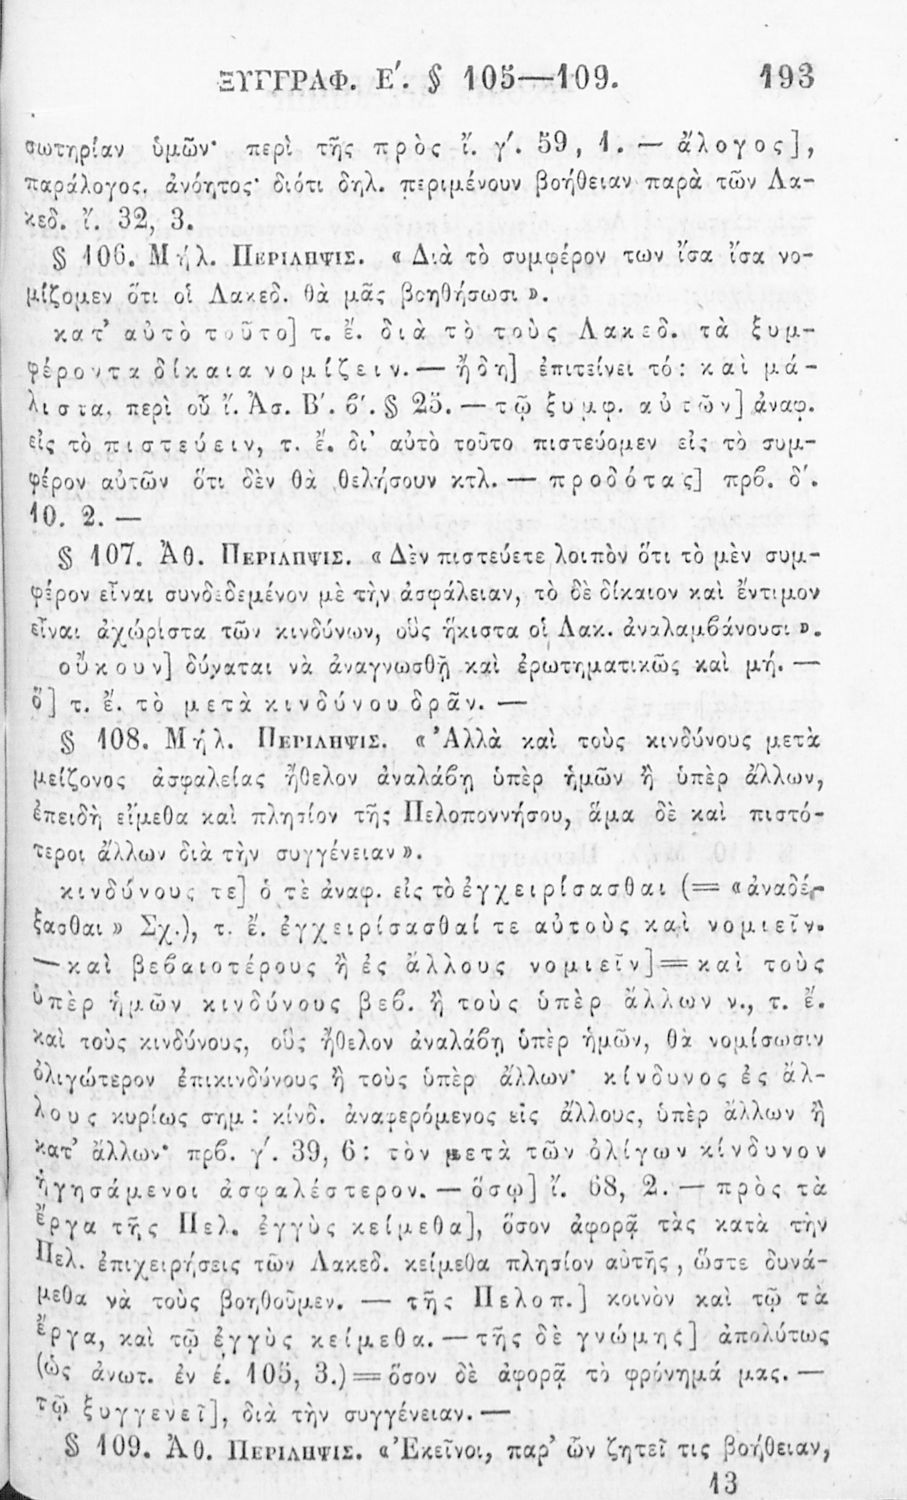 ΞΥΓΓΡΑΦ. Ε΄. § 105—109. 193
σωτηρίαν ὑμῶν· περὶ τῆς πρὸς ἴ. γ΄. 59, 1. — ἄλογος],
παράλογος, ἀνόητος· διότι δηλ. περιμένουν βοήθειαν παρὰ τῶν Λα-
κεδ. ἴ. 32, 3.
§ 106. Μήλ. ΠΕΡΙΛΗΨΙΣ. « Διὰ τὸ συμφέρον των ἴσα ἴσα νο-
μίζομεν ὅτι οἱ Λακεδ. θὰ μᾶς βοηθήσωσι ».
κατ᾽ αὐτὸ τοῦτο] τ. ἔ. διὰ τὸ τοὺς Λακεδ. τὰ ξυμ-
φέροντα δίκαια νομίζειν. — ἤδη] ἐπιτείνει τό: καὶ μά-
λιστα, περὶ οὗ ἴ. Ἀσ. Β΄. ϐ΄. § 25. — τῷ ξυμφ. αὐτῶν] ἀναφ.
εἰς τὸ πιστεύειν, τ. ἔ. δι᾽ αὐτὸ τοῦτο πιστεύομεν εἰς τὸ συμ-
φέρον αὐτῶν ὅτι δὲν θὰ θελήσουν κτλ. — προδότας] πρϐ. δ΄.
10. 2. —
§ 107. Ἀθ. ΠΕΡΙΛΗΨΙΣ. « Δὲν πιστεύετε λοιπὸν ὅτι τὸ μὲν συμ-
φέρον εἶναι συνδεδεμένον μὲ τὴν ἀσφάλειαν, τὸ δὲ δίκαιον καὶ ἔντιμον
εἶναι ἀχώριστα τῶν κινδύνων, οὓς ἥκιστα οἱ Λακ. ἀναλαμϐάνουσι ».
οὔκουν] δύναται νὰ ἀναγνωσθῇ καὶ ἐρωτηματικῶς καὶ μή. —
ὃ] τ. ἔ. τὸ μετὰ κινδύνου δρᾶν. —
§ 108. Μήλ. ΠΕΡΙΛΗΨΙΣ. « Ἀλλὰ καὶ τοὺς κινδύνους μετὰ
μείζονος ἀσφαλείας ἤθελον ἀναλάϐῃ ὑπὲρ ἡμῶν ἢ ὑπὲρ ἄλλων,
ἐπειδὴ εἴμεθα καὶ πλησίον τῆς Πελοποννήσου, ἅμα δὲ καὶ πιστό-
τεροι ἄλλων διὰ τὴν συγγένειαν ».
κινδύνους τε] ὁ τὲ ἀναφ. εἰς τὸ ἐγχειρίσασθαι (= « ἀναδέ-
ξασθαι » Σχ.), τ. ἔ. ἐγχειρίσασθαί τε αὐτοὺς καὶ νομιεῖν.
— καὶ βεϐαιοτέρους ἢ ἐς ἄλλους νομιεῖν] = καὶ τοὺς
ὑπὲρ ἡμῶν κινδύνους βεϐ. ἢ τοὺς ὑπὲρ ἄλλων ν., τ. ἔ.
καὶ τοὺς κινδύνους, οὓς ἤθελον ἀναλάϐῃ ὑπὲρ ἡμῶν, θὰ νομίσωσιν
ὀλιγώτερον ἐπικινδύνους ἢ τοὺς ὑπὲρ ἄλλων· κίνδυνος ἐς ἄλ-
λους κυρίως σημ: κίνδ. ἀναφερόμενος εἰς ἄλλους, ὑπὲρ ἄλλων ἢ
κατ᾽ ἄλλων· πρϐ. γ΄. 39, 6: τὸν μετὰ τῶν ὀλίγων κίνδυνον
ἡγησάμενοι ἀσφαλέστερον. — ὅσῳ] ἴ. 68, 2. — πρὸς τὰ
ἔργα τῆς Πελ. ἐγγὺς κείμεθα], ὅσον ἀφορᾷ τὰς κατὰ τὴν
Πελ. ἐπιχειρήσεις τῶν Λακεδ. κείμεθα πλησίον αὐτῆς, ὥστε δυνά-
μεθα νὰ τοὺς βοηθοῦμεν. — τῆς Πελοπ.] κοινὸν καὶ τῷ τὰ
ἔργα, καὶ τῷ ἐγγὺς κείμεθα. — τῆς δὲ γνώμης] ἀπολύτως
(ὡς ἀνωτ. ἐν ἐ. 105, 3.) = ὅσον δὲ ἀφορᾷ τὸ φρόνημά μας. —
τῷ ξυγγενεῖ], διὰ τὴν συγγένειαν. —
§ 109. Ἀθ. ΠΕΡΙΛΗΨΙΣ. « Ἐκεῖνοι, παρ᾽ ὧν ζητεῖ τις βοήθειαν,
13